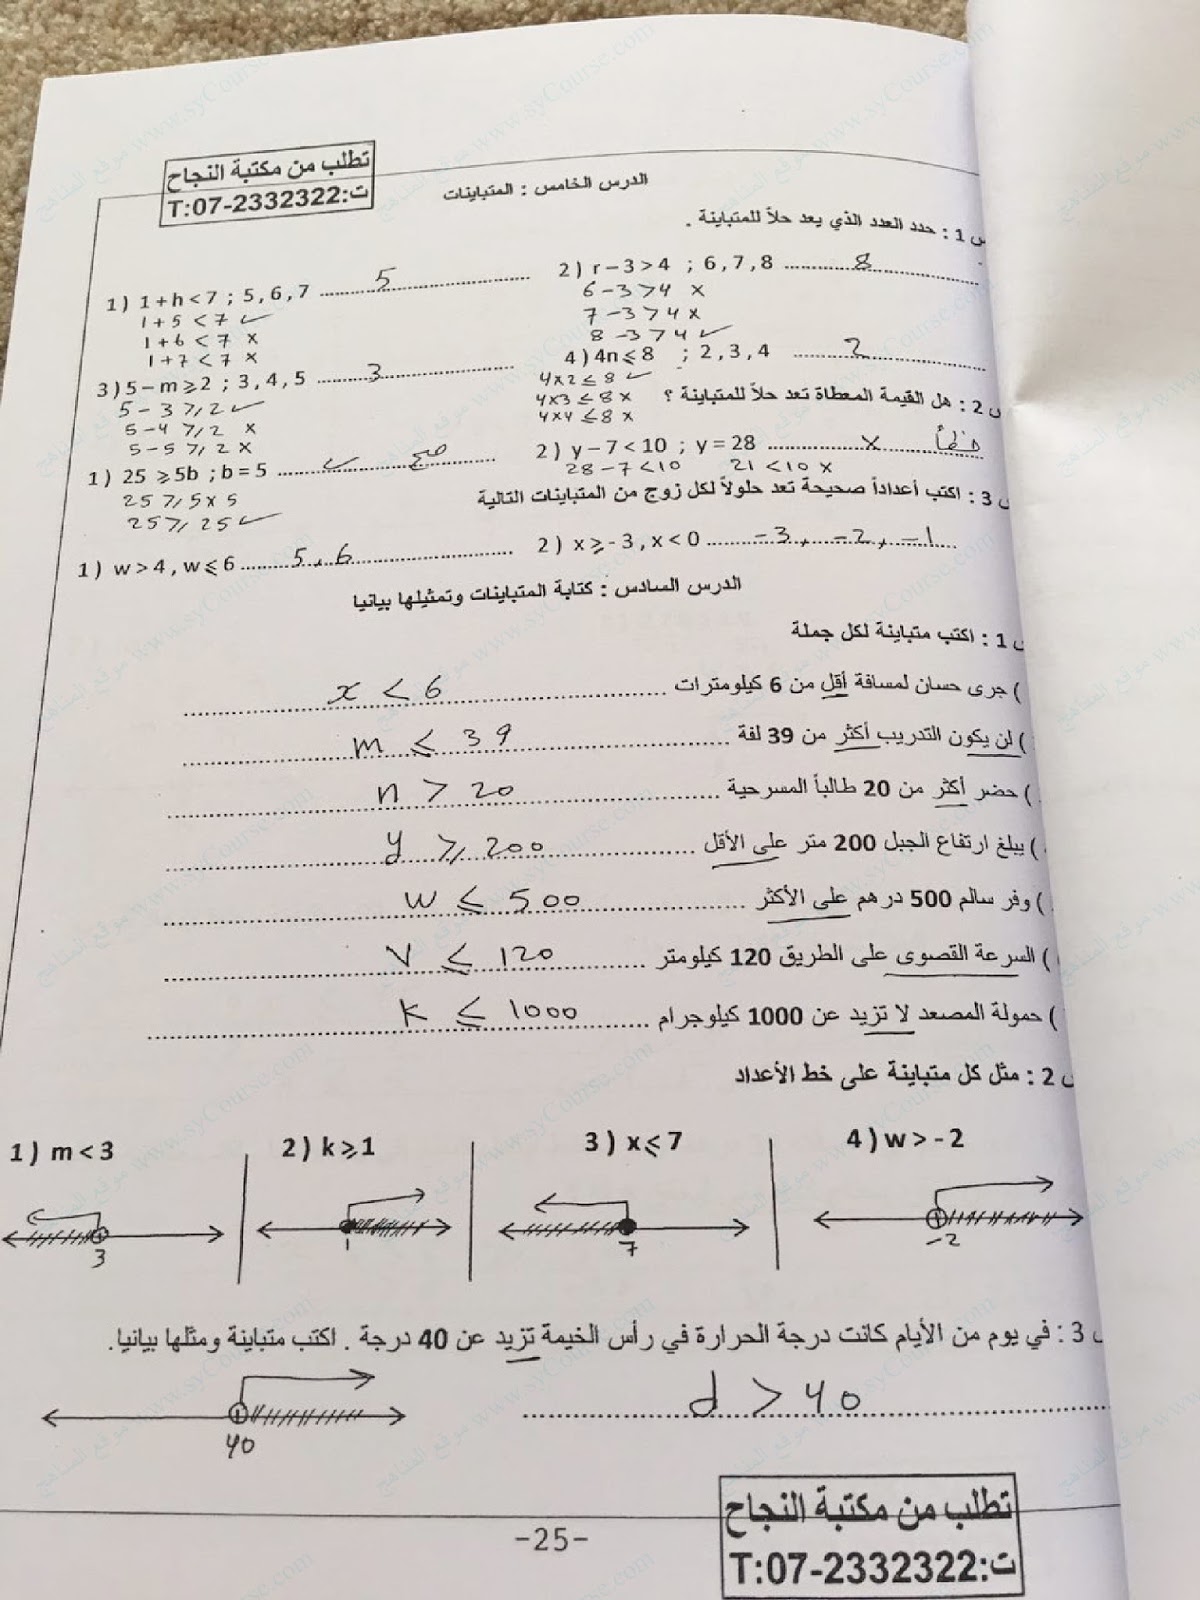 تطلب من مكتبة النجاح
ت:T:07-2332322
الدرس الخامس : المتباينات
س 1 : حدد العدد الذي يعد حلاً للمتباينة .
1 ) 1 + h < 7 ; 5 , 6 , 7 ........ 5 ........
1 + 5 < 7 ✓
1 + 6 < 7 x
1 + 7 < 7 x
2 ) r – 3 > 4 ; 6 , 7 , 8 ........ 8 ........
6 – 3 > 4 x
7 – 3 > 4 x
8 – 3 > 4 ✓
3 ) 5 – m ⩾ 2 ; 3 , 4 , 5 ........ 3 ........
5 – 3 ⩾ 2 ✓
5 – 4 ⩾ 2 x
5 – 5 ⩾ 2 x
4 ) 4n ⩽ 8 ; 2 , 3 , 4 ........ 2 ........
4 x 2 ≤ 8 ✓
4 x 3 ≤ 8 x
4 x 4 ≤ 8 x
س 2 : هل القيمة المعطاة تعد حلاً للمتباينة ؟
1 ) 25 ⩾ 5b ; b = 5 ........ ✓ صح ........
25 ⩾ 5 x 5
25 ⩾ 25 ✓
2 ) y – 7 < 10 ; y = 28 ........ x خطأ
28 – 7 < 10 21 < 10 x
س 3 : اكتب أعداداً صحيحة تعد حلولاً لكل زوج من المتباينات التالية
1 ) w > 4 , w ⩽ 6 ........ 5 , 6 ........
2 ) x ⩾ - 3 , x < 0 ........ – 3 , – 2 , – 1 ........
الدرس السادس : كتابة المتباينات وتمثيلها بيانيا
س 1 : اكتب متباينة لكل جملة
) جرى حسان لمسافة أقل من 6 كيلومترات ........ x < 6 ........
) لن يكون التدريب أكثر من 39 لفة ........ m ⩽ 39 ........
) حضر أكثر من 20 طالباً المسرحية ........ n > 20 ........
) يبلغ ارتفاع الجبل 200 متر على الأقل ........ y ⩾ 200 ........
) وفر سالم 500 درهم على الأكثر ........ w ⩽ 500 ........
) السرعة القصوى على الطريق 120 كيلومتر ........ v ⩽ 120 ........
) حمولة المصعد لا تزيد عن 1000 كيلوجرام ........ k ⩽ 1000 ........
س 2 : مثل كل متباينة على خط الأعداد
1 ) m < 3
2 ) k ⩾ 1
3 ) x ⩽ 7
4 ) w > - 2
3
1
7
–2
س 3 : في يوم من الأيام كانت درجة الحرارة في رأس الخيمة تزيد عن 40 درجة . اكتب متباينة ومثلها بيانيا.
d > 40
40
-25-
تطلب من مكتبة النجاح
ت:T:07-2332322
موقع المناهج www.syCourse.com